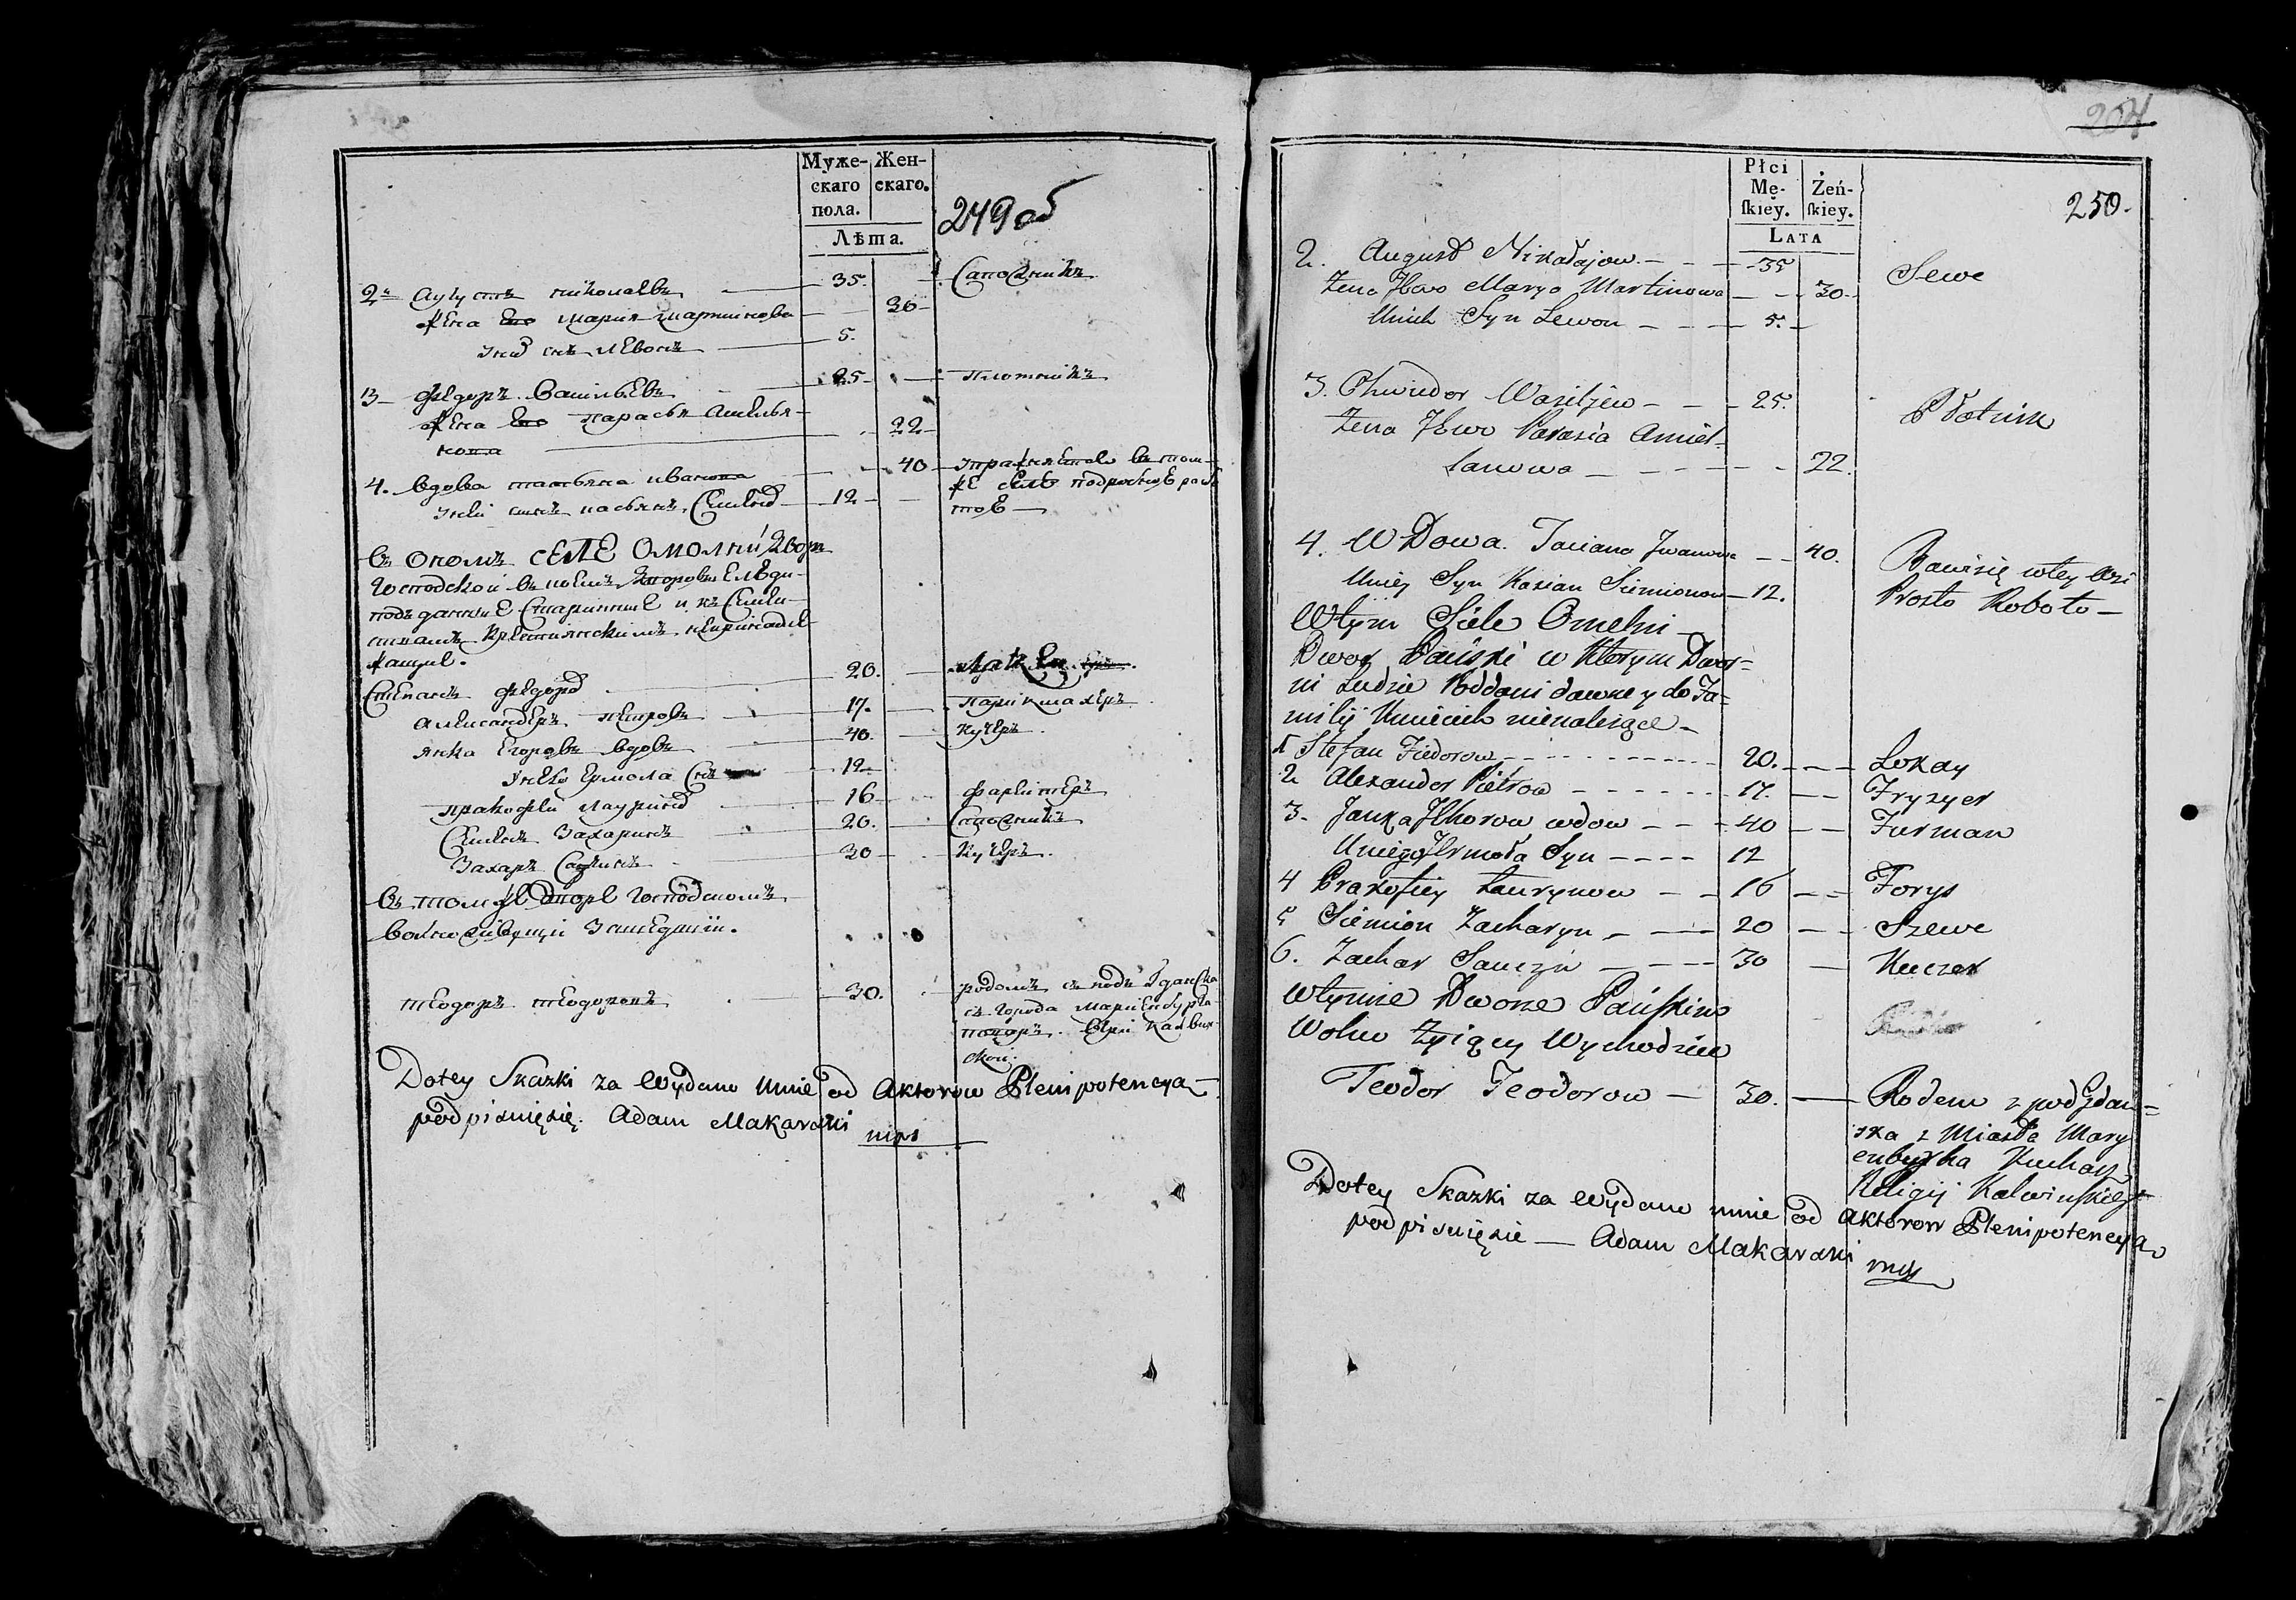 Муже- Жен-
скаго скаго.
пола.
Лѣта.
249 об
2 Аугустъ николаевъ 35. Сапожникъ
жена Его мария мартинова 30
у нихъ снъ левонъ 5.
3 федоръ Васильевъ 25 плотникъ
жена Его парасья Амелья-
нова 22
4. вдова татьяна иванова 40 упражняется въ том-
у ней сынъ касьянъ 12 же селе подростной рабо
тое
въ ономъ селе Омелни дворъ
Господской въ коемъ
подъданние Старинние и къ
крестиянскимъ непринадле-
жащие.
Степанъ федоровъ 20. лакей
Александеръ петровъ 17. парикмахеръ
янка Егоровъ вдовъ 40. кучеръ.
у нево Ермола Снъ 12
пракофей лауриновъ 16 фарейтеръ
Семенъ Захаринъ 20. Сапожникъ
Захаръ Савинъ 30 кучеръ.
въ томже дворе Господскомъ
волно живущий Зашедший.
теодоръ теодоровъ 30. родомъ съ подъ Гданска
съ города Мариенбурга
поваръ. веры калвин-
ской.
Dotey Skazki za Wydane mnie od Aktorow Plenipotencya
podpisuięsię. Adam Makarski
mps
204
Płci
Mę- Żeń-
ſkiey. ſkiey.
LATA
250.
2. August Mikałajow 35 Sewc
Żena Jeho Marya Martinowa 30
Unich Syn Lewon 5.
3. Chwiedor Wasiljew 25. Płotnik
Żena Jewo Parasia Amiel-
lanowa 22.
4. Wdowa Taciana Iwanowa 40. Bawisię wtey Wsi
Uniey Syn Kasian Siemionow 12. Prosto Roboto
Wtym Siele Omelni
Dwor Pański w Ktorym Dwor=
ni Ludzie Poddani dawne y do Fa=
milij Kmiecich nienależące
1 Stefan Fiedorow 20. Lokay
2 Alexander Pietrow 17. Fryzyer
3. Janka Jehorow wdow 40 Furman
Uniego Jermoła Syn 12
4 Prakofiey Laurynow 16 Forys
5 Siemion Zacharyn 20 Szewc
6. Zachar Sawczyn 30 Kuczer
Wtymże Dworze Pańſkim
Wolno Żyiący Wychodziec
Teodor Teodorow 30. Rodem z pod Gdan=
ska z Miasta Mary
enburka Kucharz
Religij Kalwinſkiey
Dotey Skazki za Wydane mnie od Aktorow Plenipotencya
podpisuięsie Adam Makarski
mps